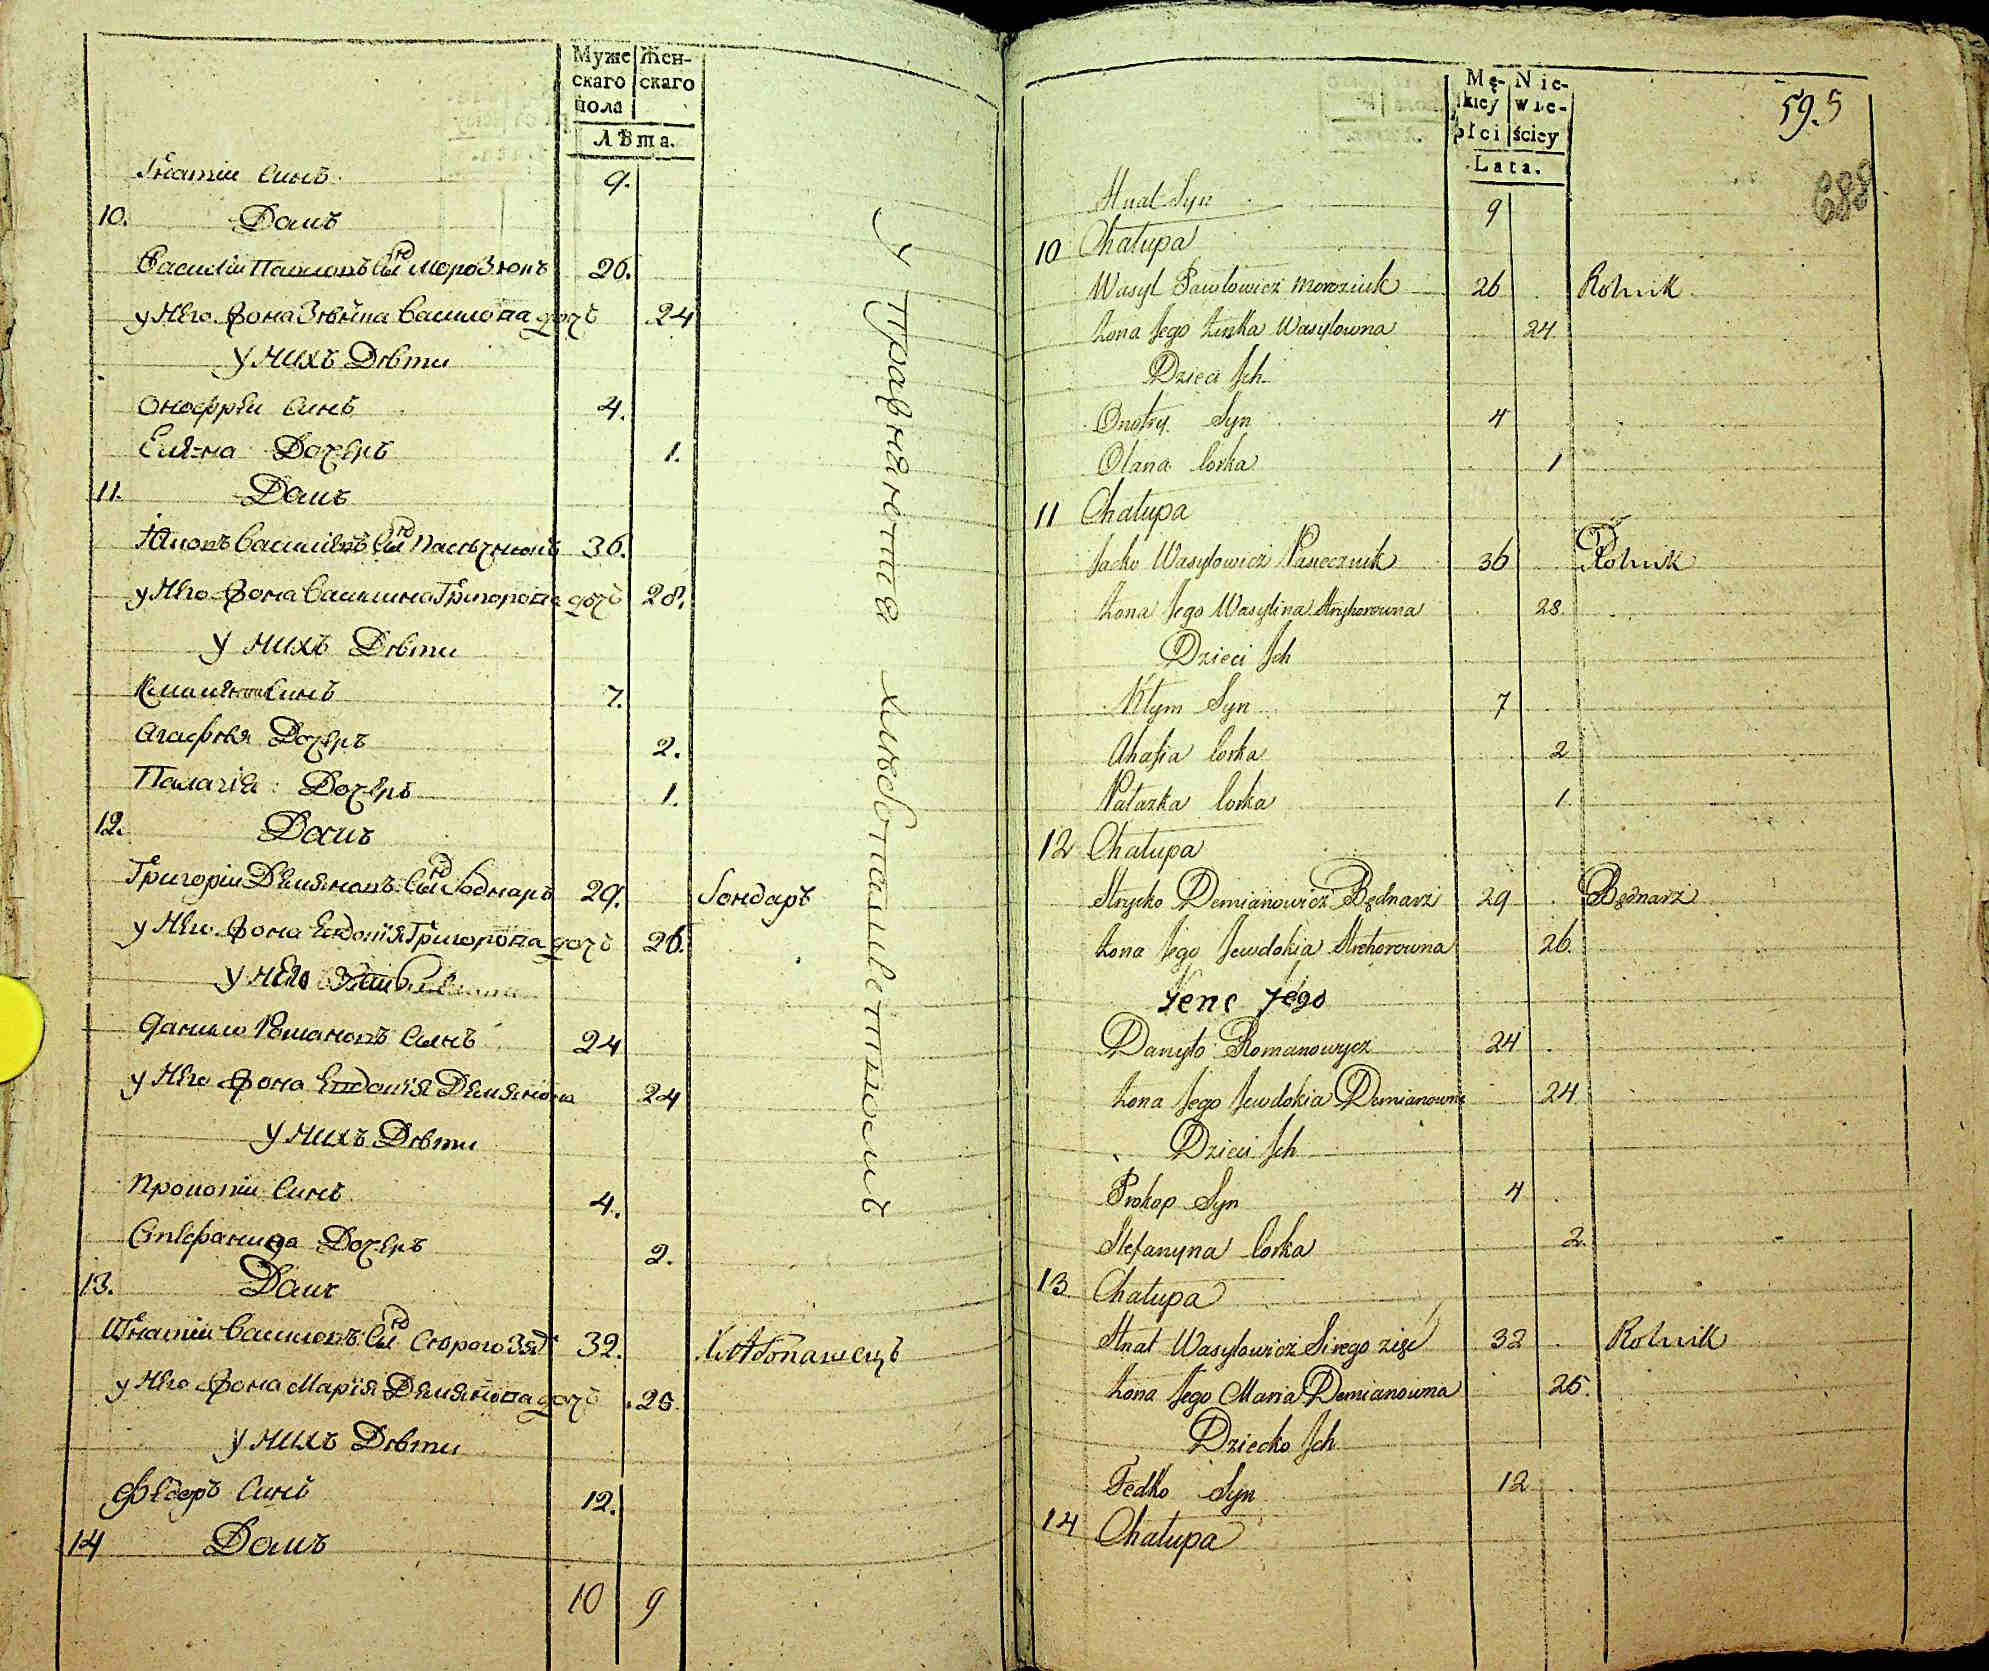 Муже Жен-
скаго скаго
пола
Лѣта.
Гнатій Синъ 9.
10. Домъ
Василій Павловъ Сынъ Морозюкъ 26.
у Него Жона Зѣнька Василіова дочь 24
У Нихъ Дѣти
Онофрѣй Синъ 4.
Еляна Дочеръ 1.
11. Домъ
Яковъ Василіовъ Сынъ Пасѣчникъ 36.
у Него Жона Василина Григорова дочь 28.
У Нихъ Дѣти
Климентій Синъ 7.
Агафѣя Дочеръ 2.
Палагія Дочеръ 1.
12. Домъ
Григорій Демяновъ Сынъ Боднаръ 29. Бондаръ
у Него Жона Евдокія Григорова дочь 26.
У Него
Данило Романовъ Синъ 24
у Него Жона Евдокія Демянова 24
У Нихъ Дѣти
Прокопій Синъ 4.
Стефанида Дочеръ 2.
13. Домъ
Игнатій Василіовъ Сынъ Сѣрого Зять 32. Хлѣбопашецъ
у Него Жона Марія Демянова дочь 25.
У Нихъ Дѣти
Федоръ Синъ 12.
14 Домъ
10 9
Упражняются хлѣбопашествомъ
Mę- Nie-
skiey wie-
płci ściey
Lata.
59.
Hnat Syn 9
10 Chałupa
Wasyl Pawłowicz Moroziuk 26 Rolnik
Żona Jego Zinka Wasylowna 24
Dzieci Jch
Onofry Syn 4
Olana Corka 1
11 Chałupa
Jacko Wasylowicz Pasiecznik 36 Rolnik
Żona Jego Wasylina Hryhorowna 28
Dzieci Jch
Kłym Syn 7
Ahafia Corka 2
Pałazka Corka 1
12 Chałupa
Hrycko Demianowicz Bednarz 29 Bednarz
Żona Jego Jewdokia Hrehorowna 26
Zenc Jégo
Danyło Romanowycz 24
Żona Jego Jewdokia Demianowna 24
Dzieci Jch
Prokop Syn 4
Stefanyna Corka 2
13 Chałupa
Hnat Wasylowicz Sirego zięć 32 Rolnik
Żona Jego Maria Demianowna 25.
Dziecko Jch
Fedko Syn 12
14 Chałupa